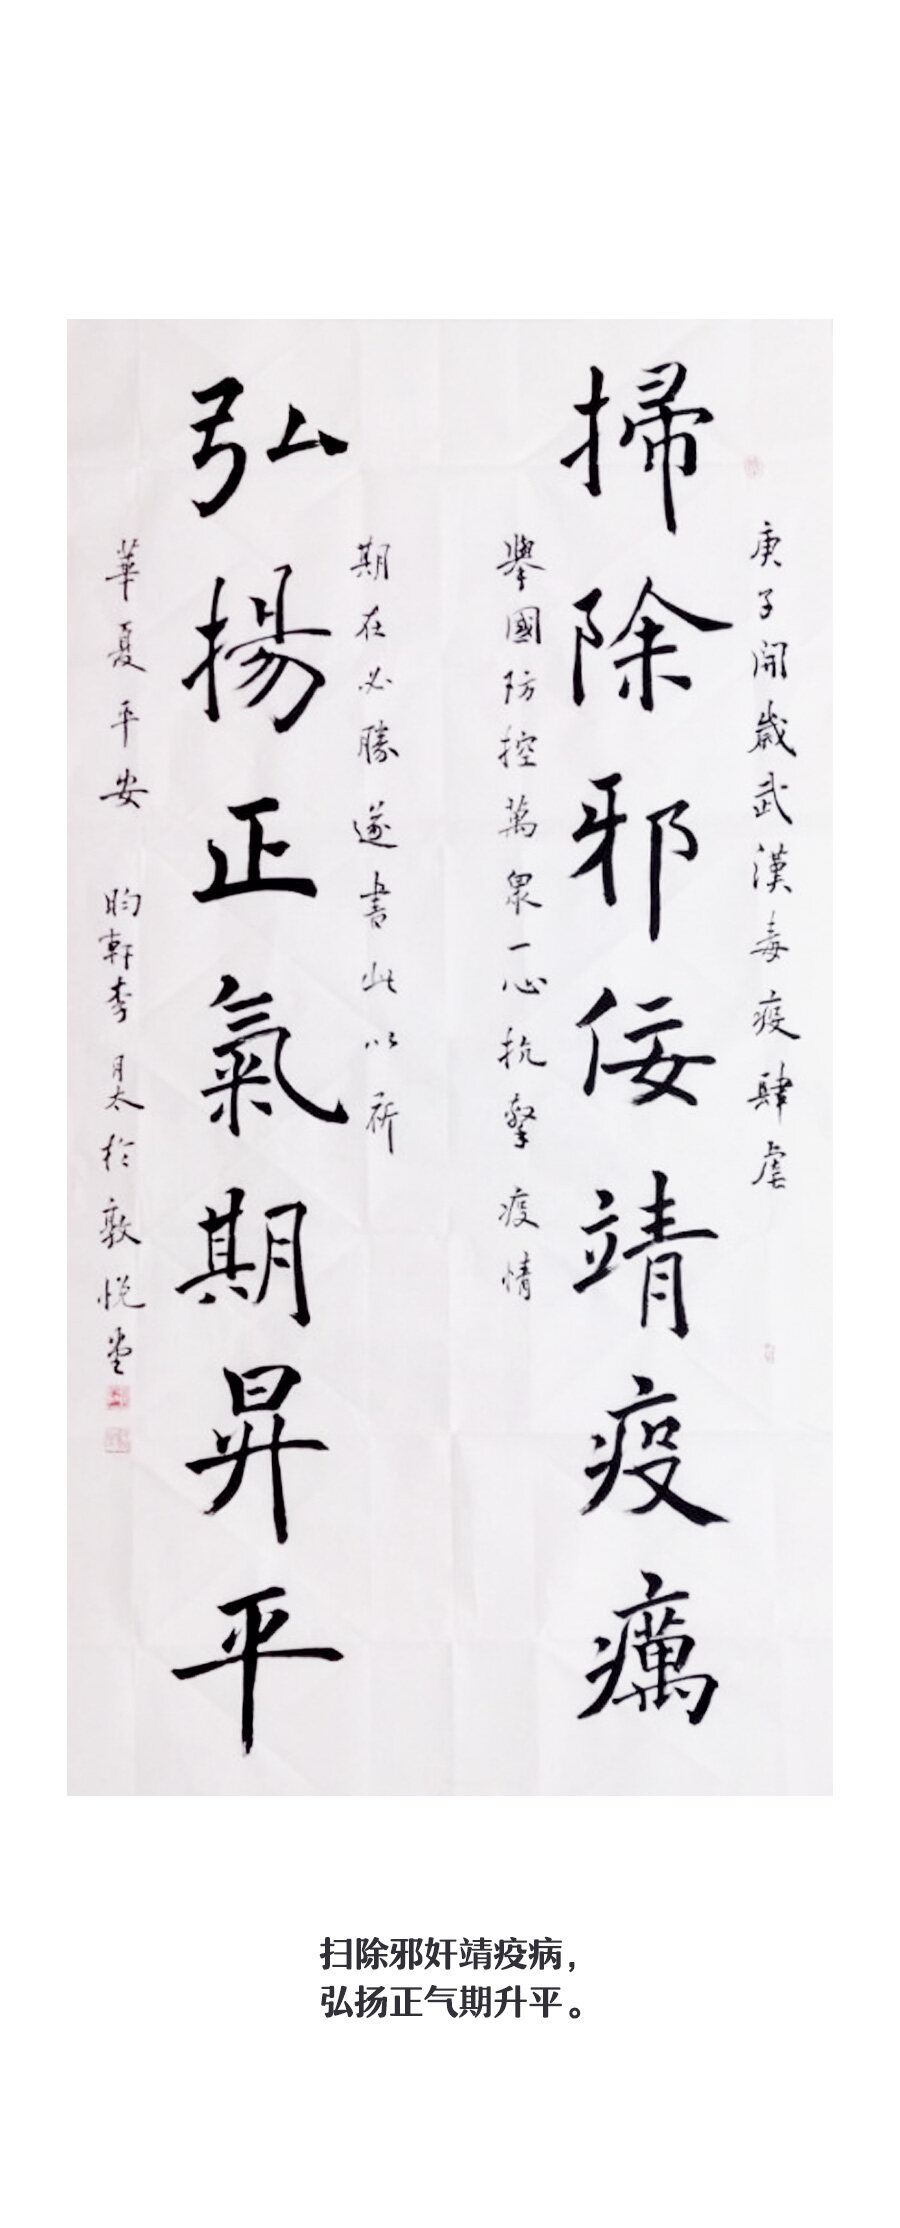 庚子開歲武漢毒疫肆虐
掃除邪佞靖疫癘
舉國防控萬衆一心抗擊疫情
期在必勝遂書此以祈
弘揚正氣期昇平
華夏平安 昀軒李月太於敦悅堂
扫除邪奸靖疫病，
弘扬正气期升平。